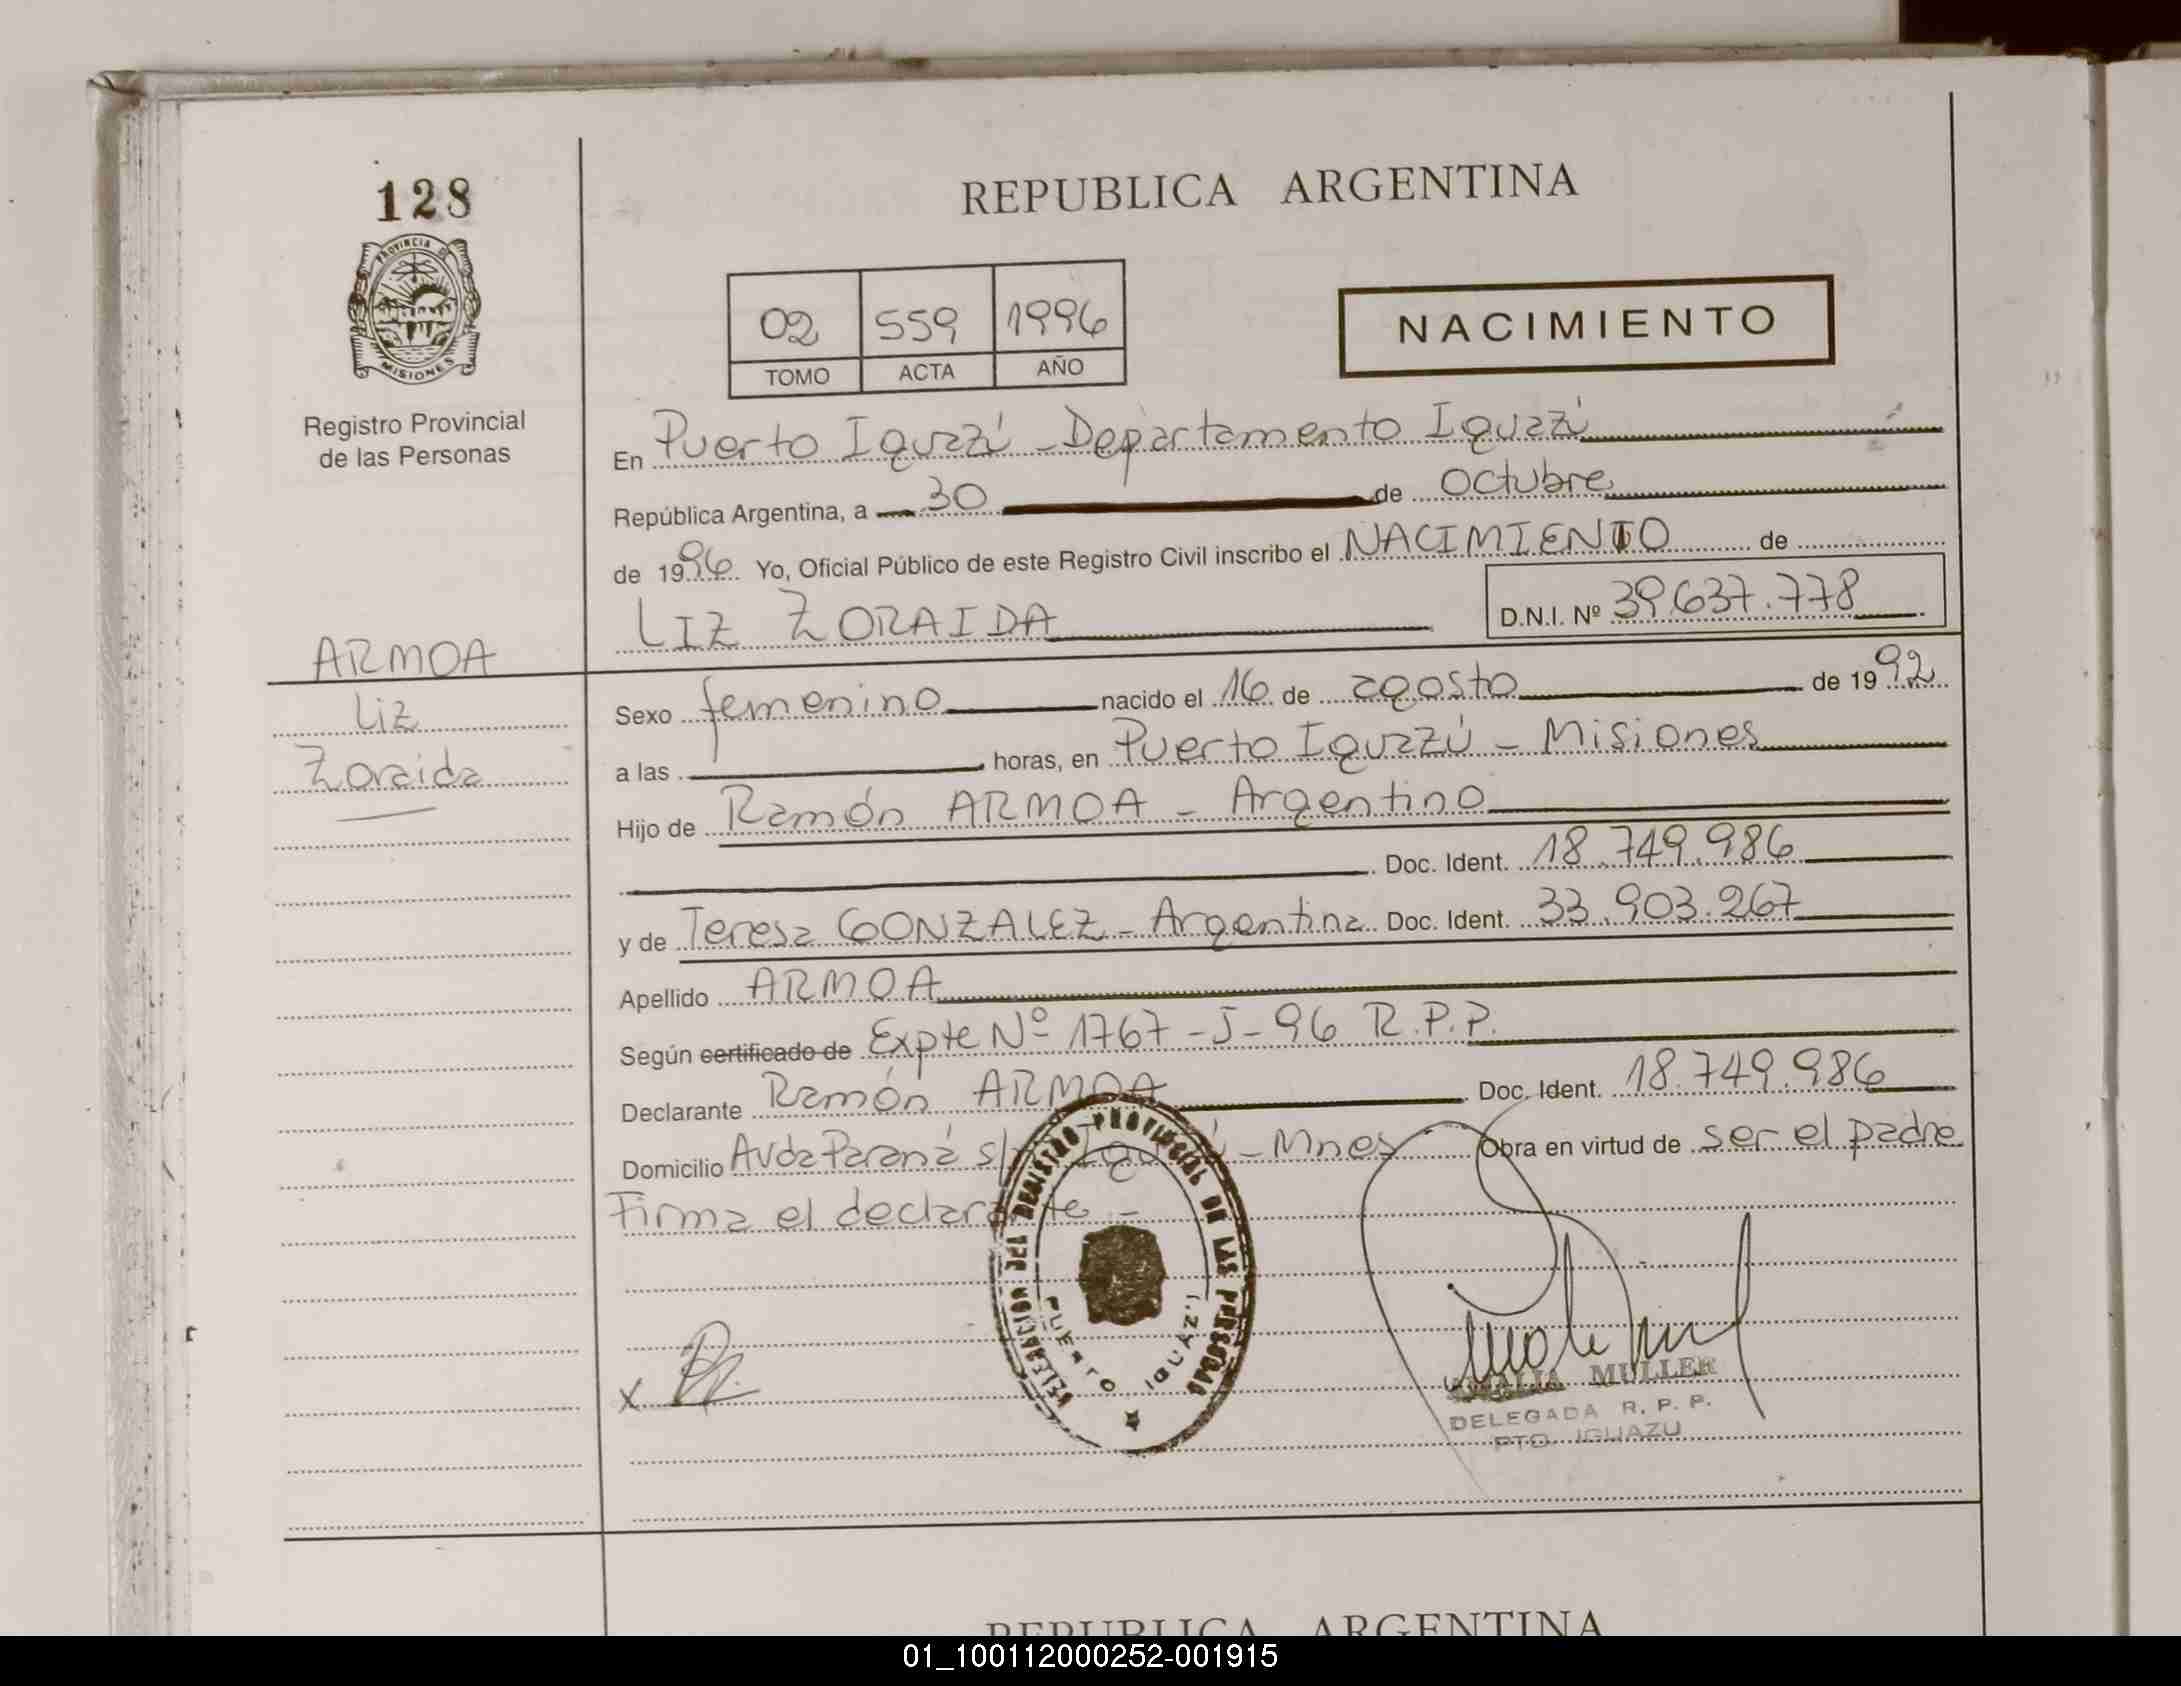 128
PROVINCIA
MISIONES
Registro Provincial
de las Personas
REPUBLICA ARGENTINA
02 559 1996
TOMO ACTA AÑO
NACIMIENTO
En Puerto Iguazú - Departamento Iguazú
República Argentina, a 30 de Octubre
de 1996 Yo, Oficial Público de este Registro Civil inscribo el NACIMIENTO de
LIZ ZORAIDA D.N.I. Nº 39.637.778
ARMOA
Liz
Zoraida
Sexo femenino nacido el 16 de agosto de 1992
a las horas, en Puerto Iguazú - Misiones
Hijo de Ramón ARMOA - Argentino
Doc. Ident. 18.749.986
y de Teresa GONZALEZ - Argentina Doc. Ident. 33.903.267
Apellido ARMOA
Según certificado de Expte Nº 1767-J-96 R.P.P.
Declarante Ramón ARMOA Doc. Ident. 18.749.986
Domicilio Avda Paraná Iguazú - Mnes Obra en virtud de ser el padre
Firma el declarante -
DELEGACION DEL REGISTRO PROVINCIAL DE LAS PERSONAS
PUERTO IGUAZU
x
MULLER
DELEGADA R. P. P.
PTO. IGUAZU
REPUBLICA ARGENTINA
01_100112000252-001915